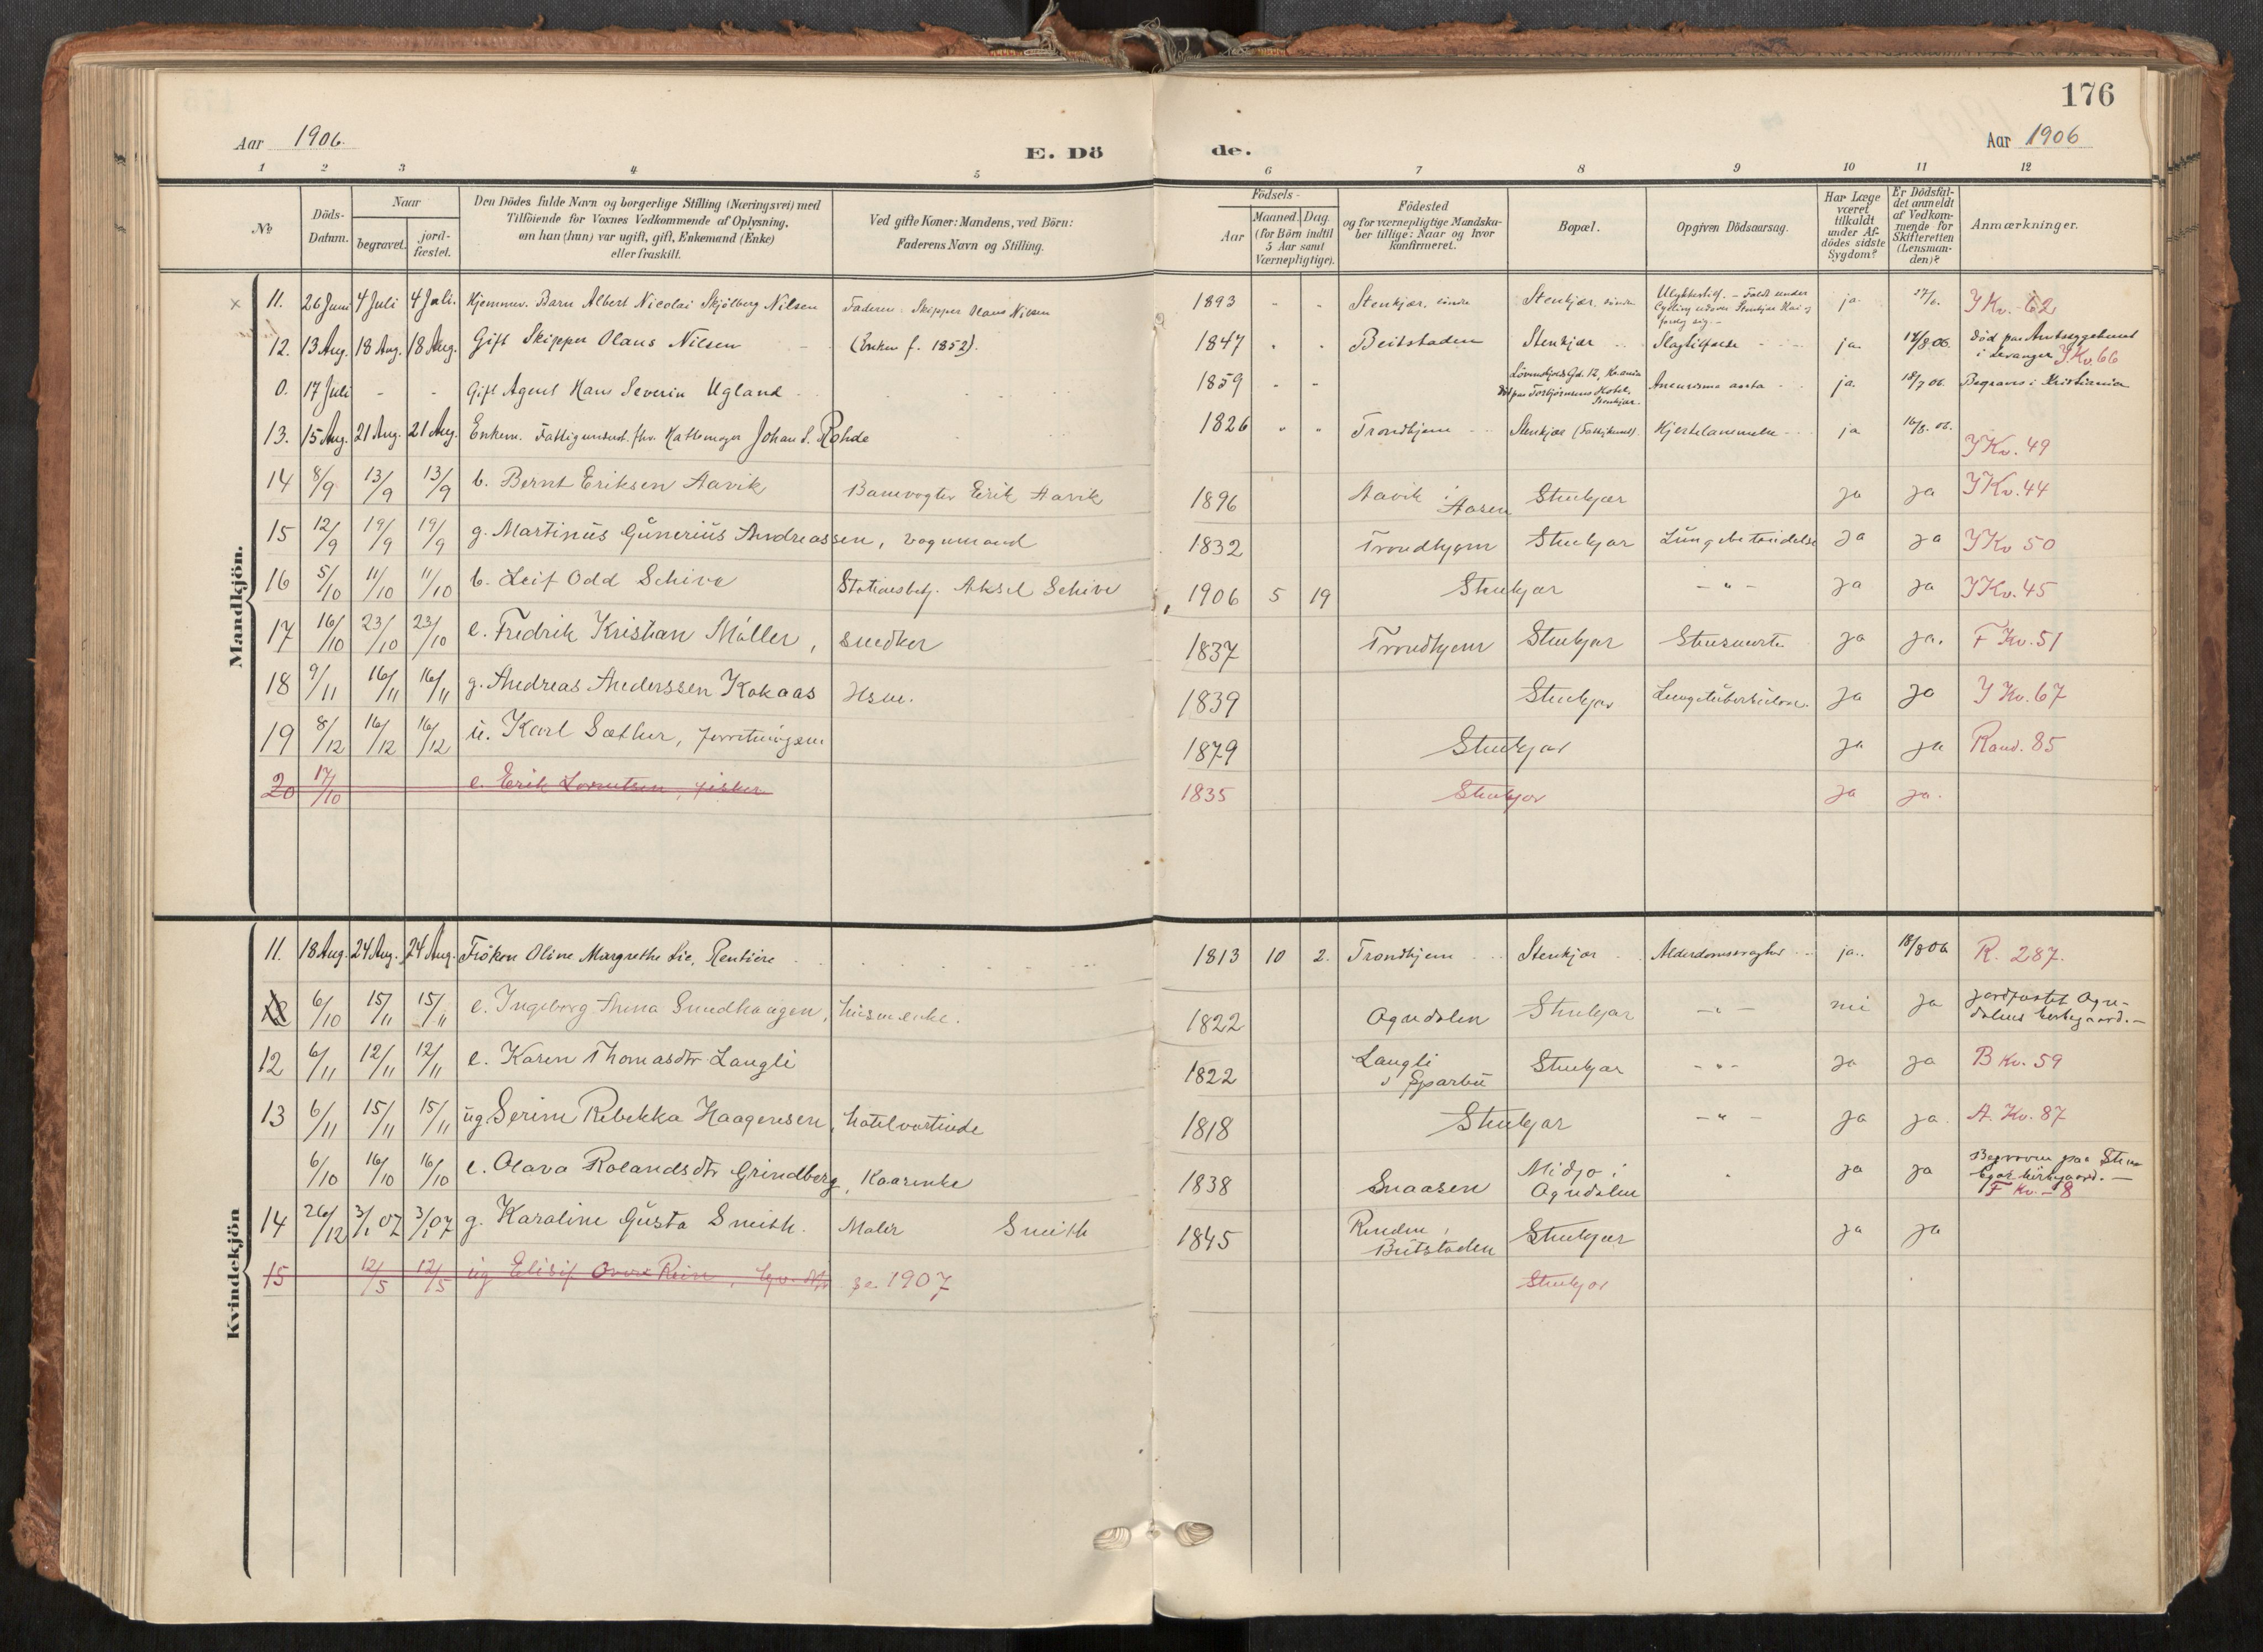 176
Aar 1906.
E. Dö de.
Aar 1906
1 2 3 4 5 6 7 8 9 10 11 12
№
Döds-Datum.
Naar
begravet.
jord-fæstet.
Den Dödes fulde Navn og borgerlige Stilling (Næringsvei) med
Tilföiende for Voxnes Vedkommende af Oplysning,
om han (hun) var ugift, gift, Enkemand (Enke)
eller fraskilt.
Ved gifte Koner: Mandens, ved Börn:
Faderens Navn og Stilling.
Födsels-
Aar
Maaned. Dag.
(for Börn indtil
5 Aar samt
Værnepligtige).
Födested
og for værnepligtige Mandska-
ber tillige: Naar og hvor
konfirmeret.
Bopæl.
Opgiven Dödsaarsag.
Har Læge
været
tilkaldt
under Af-
dödes sidste
Sygdom?
Er Dödsfal-
det anmeldt
af Vedkom-
mende for
Skifteretten
(Lensman-
den)?
Anmærkninger.
Mandkjön.
11. 26 Juni 4 Juli 4 Juli. Hjemmev. Barn Albert Nicolai Skjölberg Nilsen Faderen: Skipper Olaus Nilsen 1893 - - Stenkjær, söndre Stenkjær, söndre Ulykkestilf. - Faldt under
Cycling udover Stenkjær Kai og
ja 27/6. J Kv. 62
12. 13 Aug. 18 Aug. 18 Aug. Gift Skipper Olaus Nilsen (Enken f. 1852). 1847 Beitstaden Stenkjær Slagtilfælde ja 14/8 06. Död paa Amtssygehuset
i Levanger J Kv. 66
0. 17 Juli - - Gift Agent Hans Severin Ugland 1859 - - Gd. 12, Kr.ania
Död paa Torbjörnsens Hotel,
Stenkjær. Aneurisma aorta ja. 18/7 06. Begraves i Kristiania
13. 15 Aug. 21 Aug. 21 Aug. Enkem. Fattigunderst. fhv. Hattemager Johan S. Rohde 1826 Trondhjem Stenkjær (Fattighuset). Hjertelammelse ja 16/8. 06. J Kv. 49
14 8/9 13/9 13/9 b. Bernt Eriksen Aavik Banevogter Erik Aavik 1896 Aavik i
Aasen Stenkjær ja ja J Kv. 44
15 12/9 19/9 19/9 g. Martinus Gunerius Andreassen, vognmand 1832 Trondhjem Stenkjær Lungebetændelse ja ja J Kv 50
16 5/10 11/10 11/10 b. Leif Odd Schive Stationsbetj. Aksel Schive 1906 5 19 Stenkjær - " - ja ja J Kv. 45
17 16/10 23/10 23/10 e. Fredrik Kristian Möller, snedker 1837 Trondhjem Stenkjær ja ja. F Kv. 51
18 9/11 16/11 16/11 g. Andreas Anderssen Kokaas Hsm. 1839 Stenkjær Lungetuberkulose. ja ja J Kv. 67
19 8/12 16/12 16/12 u. Karl Sæther, forretningsm 1879 Stenkjær ja ja Rand. 85
20 17/10 e. Erik Lorentsen, fisker 1835 Stenkjær ja ja.
Kvindekjön
11. 18 Aug. 24 Aug. 24 Aug. Fröken Oline Margrethe Lie, Rentiere 1813 10 2. Trondhjem Stenkjær Alderdomssvaghed ja. 18/8 06 R. 287.
12 6/10 15/11 15/11 e. Ingeborg Anna Sundhaugen, husm.enke. 1822 Ogndalen Stenkjær - " - nei ja jordfæstet Ogn-
dalens kirkegaard. -
12 6/11 12/11 12/11 e. Karen Thomasdtr Langli 1822 Langli
i Sparbu Stenkjær - " - ja ja B Kv. 59
13 6/11 15/11 15/11 ug. Serine Rebekka Haagensen, hotelvertinde 1818 Stenkjær - " - ja ja. A. Kv. 87
6/10 16/10 16/10 e. Olava Rolandsdtr Grindberg, Kaarenke 1838 Snaasen Midjo i
Ogndalen ja ja Begraven paa Sten-
kjær kirkegaard. -
F Kv. - 8
14 26/12 3/1 07 3/1 07 g. Karoline Gusta Smith. Maler Smith 1845
Beitstaden Stenkjær ja ja
15 12/5 12/5 ug Elisif Rein, se. 1907 Stenkjær